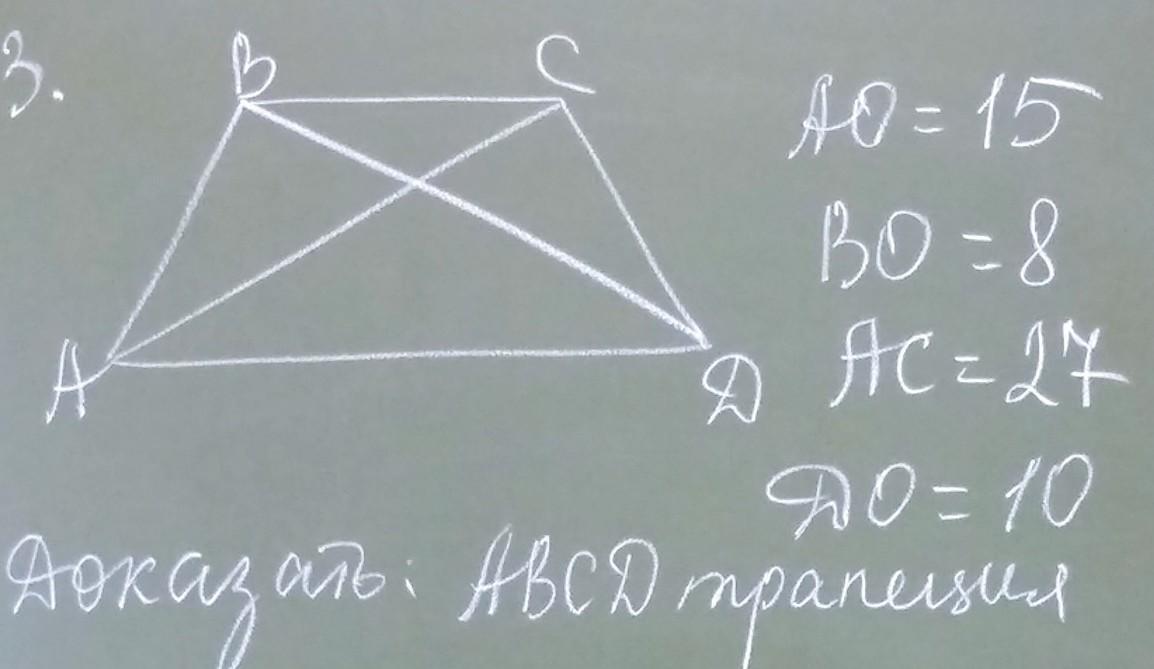 3.
B
C
A
D
AO = 15
BO = 8
AC = 27
DO = 10
Доказать: ABCD трапеция